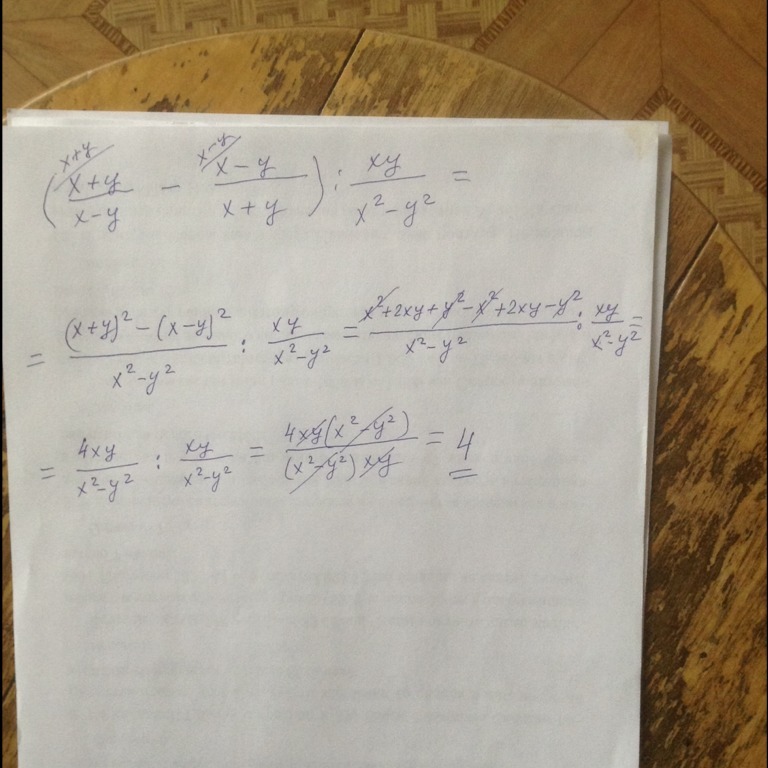 ((x+y)^(x+y)/(x-y) - (x-y)^(x-y)/(x+y)) : xy/(x²-y²) =
= ((x+y)²-(x-y)²)/(x²-y²) : xy/(x²-y²) = (x²+2xy+y²-x²+2xy-y²)/(x²-y²) : xy/(x²-y²) =
= 4xy/(x²-y²) : xy/(x²-y²) = 4xy(x²-y²)/((x²-y²)xy) = 4